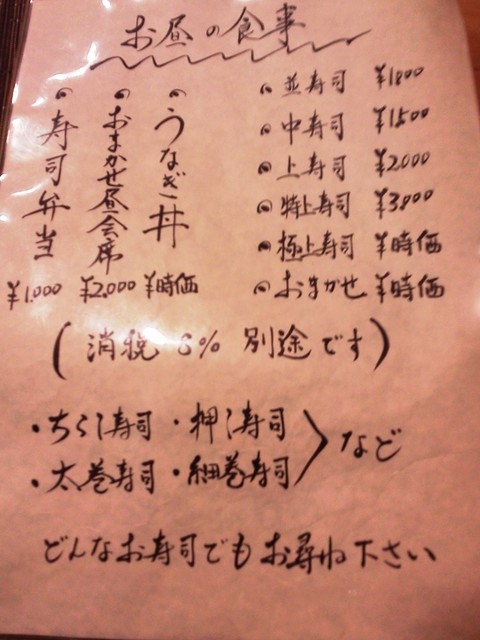 お昼の食事
うなぎ丼
¥時価
おまかせ昼会席
¥2,000
寿司弁当
¥1,000
並寿司 ¥1000
中寿司 ¥1500
上寿司 ¥2000
特上寿司 ¥3,000
極上寿司 ¥時価
おまかせ ¥時価
(消税 8% 別途です)
・ちらし寿司 ・押し寿司
・太巻寿司 ・細巻寿司
など
どんなお寿司でもお尋ね下さい